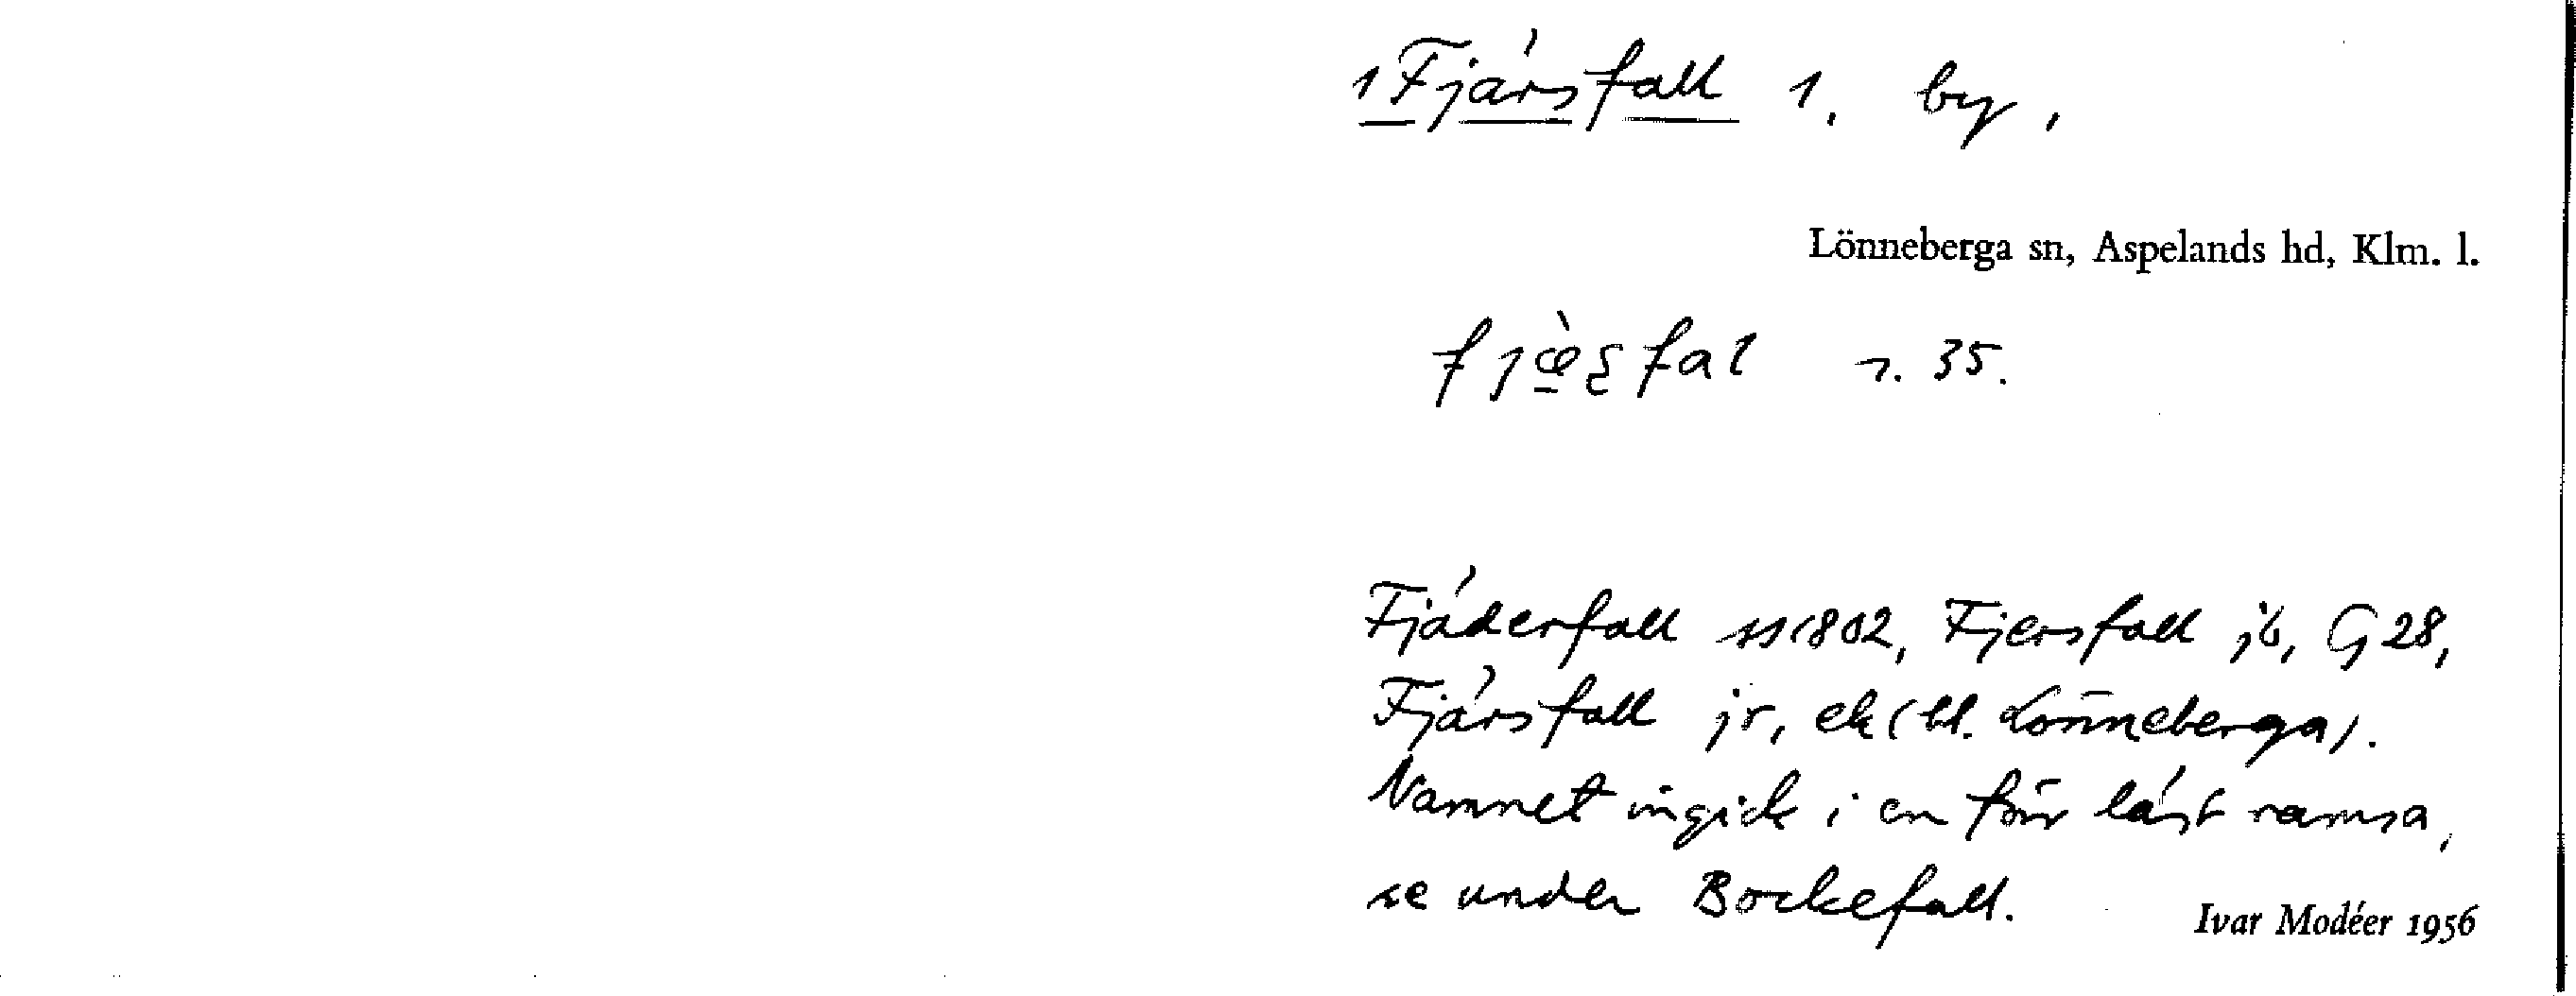 1 Fjärsfall 1. by,
Lönneberga sn, Aspelands hd, Klm. l.
fjæ̀ʂfal r. 35.
Fjäderfall ss 1802, Fjersfall jb, G 28,
Fjärsfall jr, ek (bl. Lönneberga).
Namnet ingick i en för läst ramsa,
se under Bockefall.
Ivar Modéer 1956